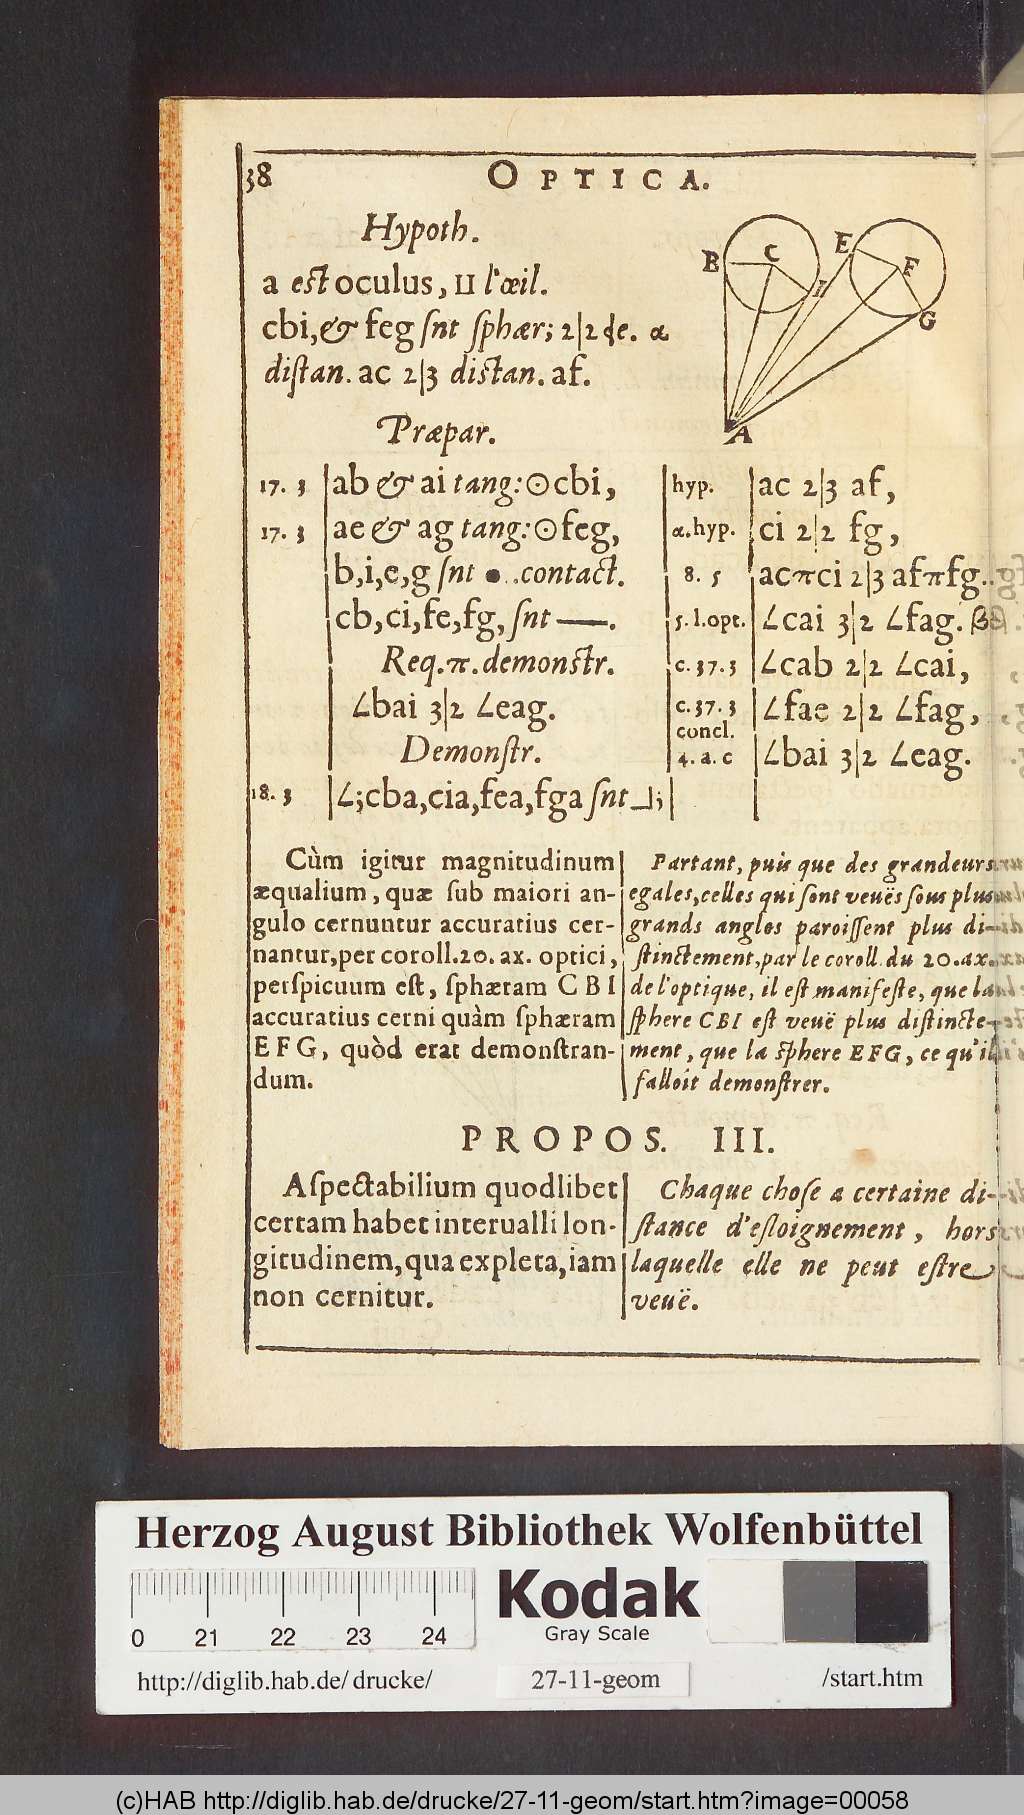 38 OPTICA.
Hypoth.
a est oculus, ⊔ l'œil.
cbi, & feg snt sphær; 2|2 de. α
distan. ac 2|3 distan. af.
B C I E F G A
Præpar.
17. 3 | ab & ai tang: ⊙cbi,
17. 3 | ae & ag tang: ⊙feg,
b,i,e,g snt •. .contact.
cb,ci,fe,fg, snt —.
Req.π. demonstr.
∠bai 3|2 ∠eag.
Demonstr.
18. 3 | ∠;cba,cia,fea,fga snt ⅃;
hyp. | ac 2|3 af,
α.hyp. | ci 2|2 fg,
8. 5 | acπci 2|3 afπfg..
5.l.opt. | ∠cai 3|2 ∠fag. β
c.37.3 | ∠cab 2|2 ∠cai,
c.37.3 | ∠fae 2|2 ∠fag,
concl.
4. a. c | ∠bai 3|2 ∠eag.
Cùm igitur magnitudinum
æqualium, quæ sub maiori an-
gulo cernuntur accuratius cer-
nantur, per coroll.20. ax. optici,
perspicuum est, sphæram CBI
accuratius cerni quàm sphæram
EFG, quòd erat demonstran-
dum.
Partant, puis que des grandeurs
egales, celles qui sont veuës sous plus
grands angles paroissent plus di-
stinctement, par le coroll. du 20. ax.
de l'optique, il est manifeste, que la
sphere CBI est veuë plus distincte-
ment, que la sphere EFG, ce qu'il
falloit demonstrer.
PROPOS. III.
Aspectabilium quodlibet
certam habet interualli lon-
gitudinem, qua expleta, iam
non cernitur.
Chaque chose a certaine di-
stance d'esloignement, hors
laquelle elle ne peut estre
veuë.
Herzog August Bibliothek Wolfenbüttel
0 21 22 23 24
Kodak
Gray Scale
http://diglib.hab.de/ drucke/ 27-11-geom /start.htm
(c)HAB http://diglib.hab.de/drucke/27-11-geom/start.htm?image=00058